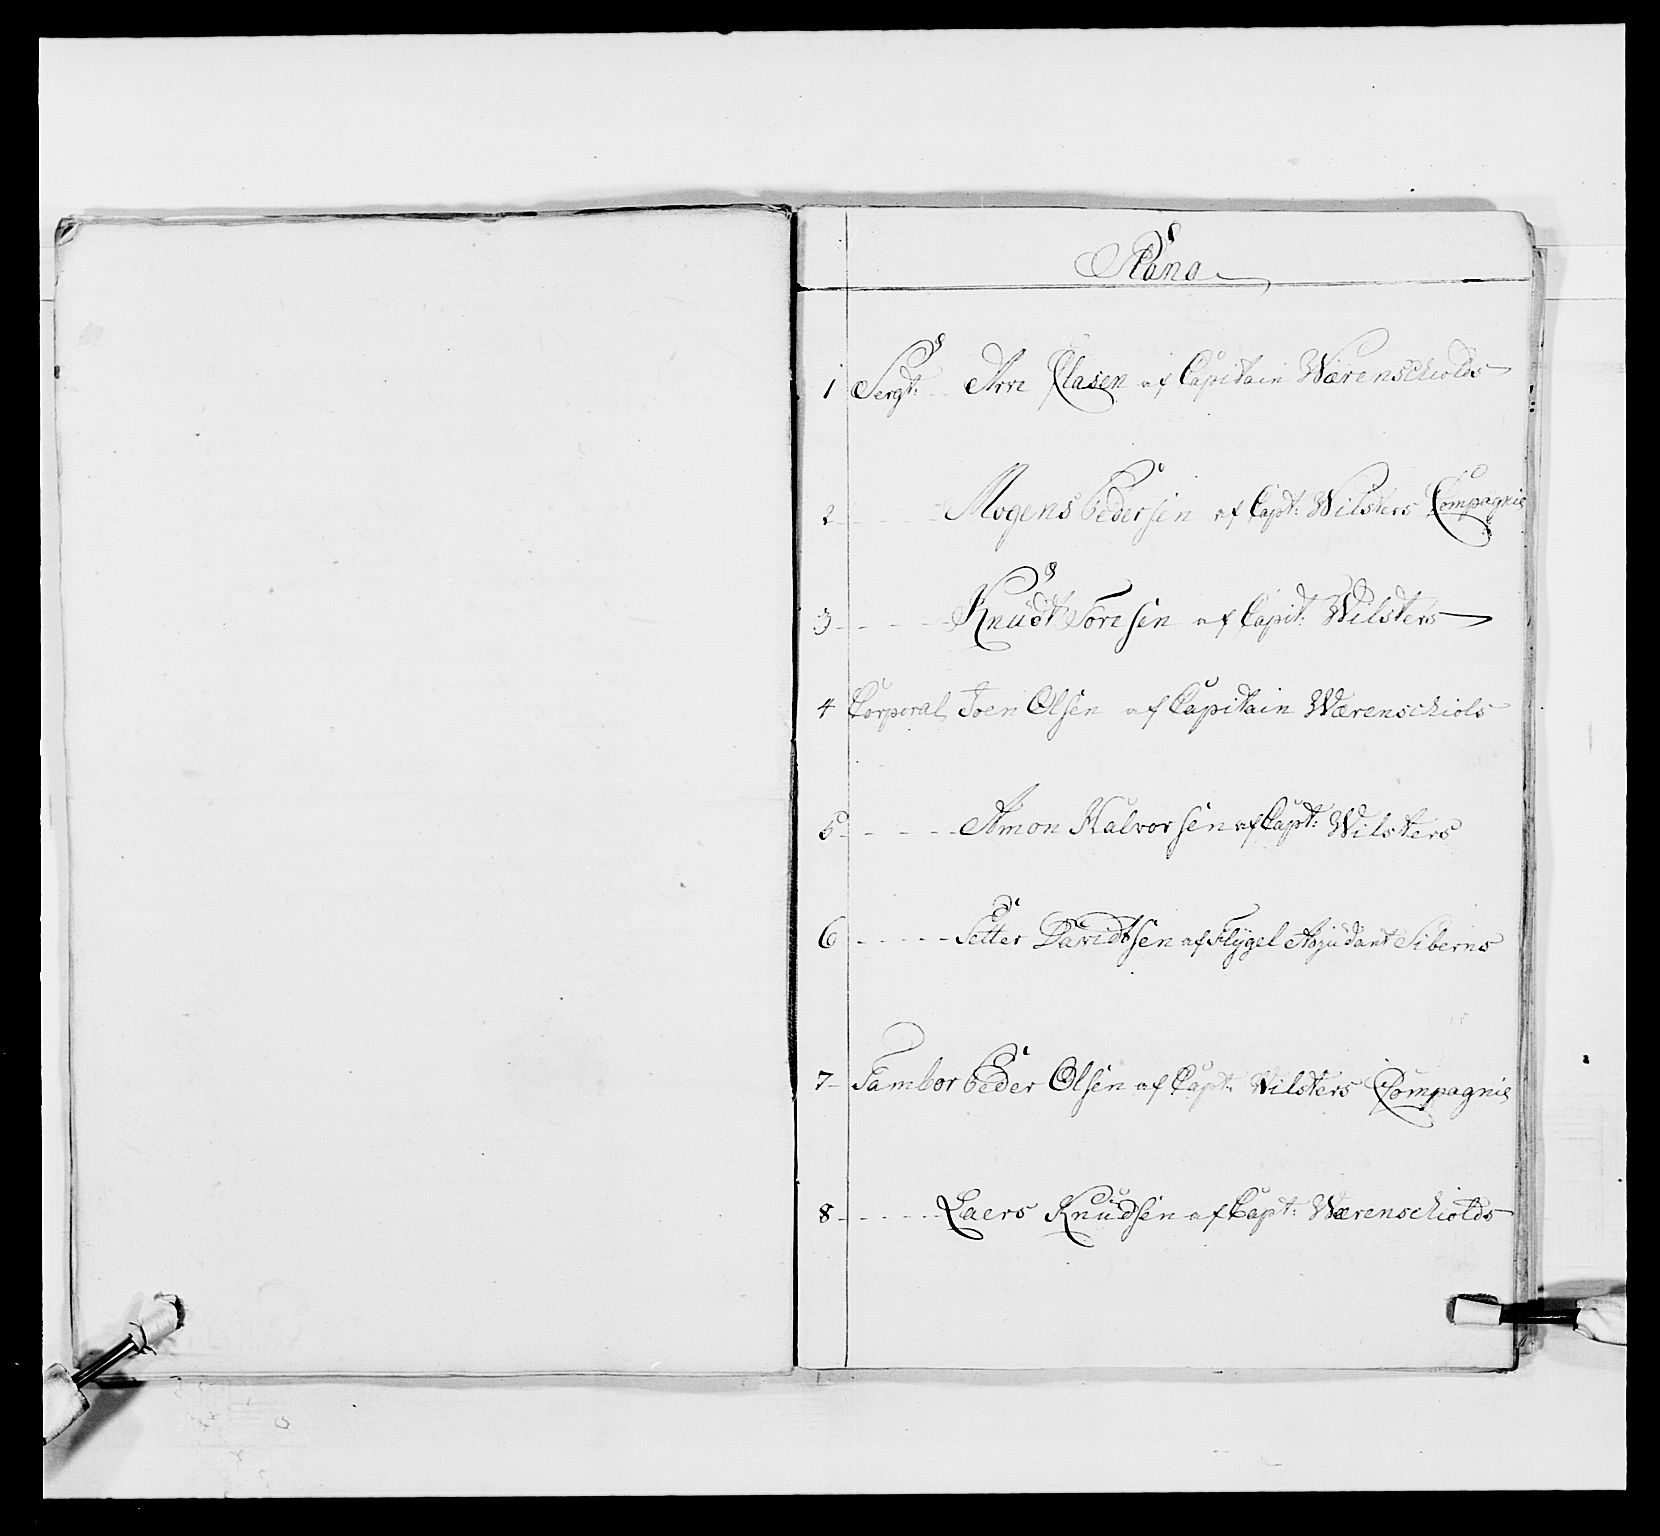 1 Sergt: Arve Clasen af Capitain Wærenschiolds
2 Mogens Pedersen af Capt: Wilsters Compagnie
3 Knudt Toresen af Capit: Wilsters
4 Corporal Joen Olsen af Capitain Wærenschiols
5 Amon Halvorsen af Capt: Wilsters
6 Petter Davidtsen af Flygel Adjudant Siberns
7 Tambor Peder Olsen af Capt: Wilsters Compagnie
8 Laers Knudsen af Capt: Wærenschiolds